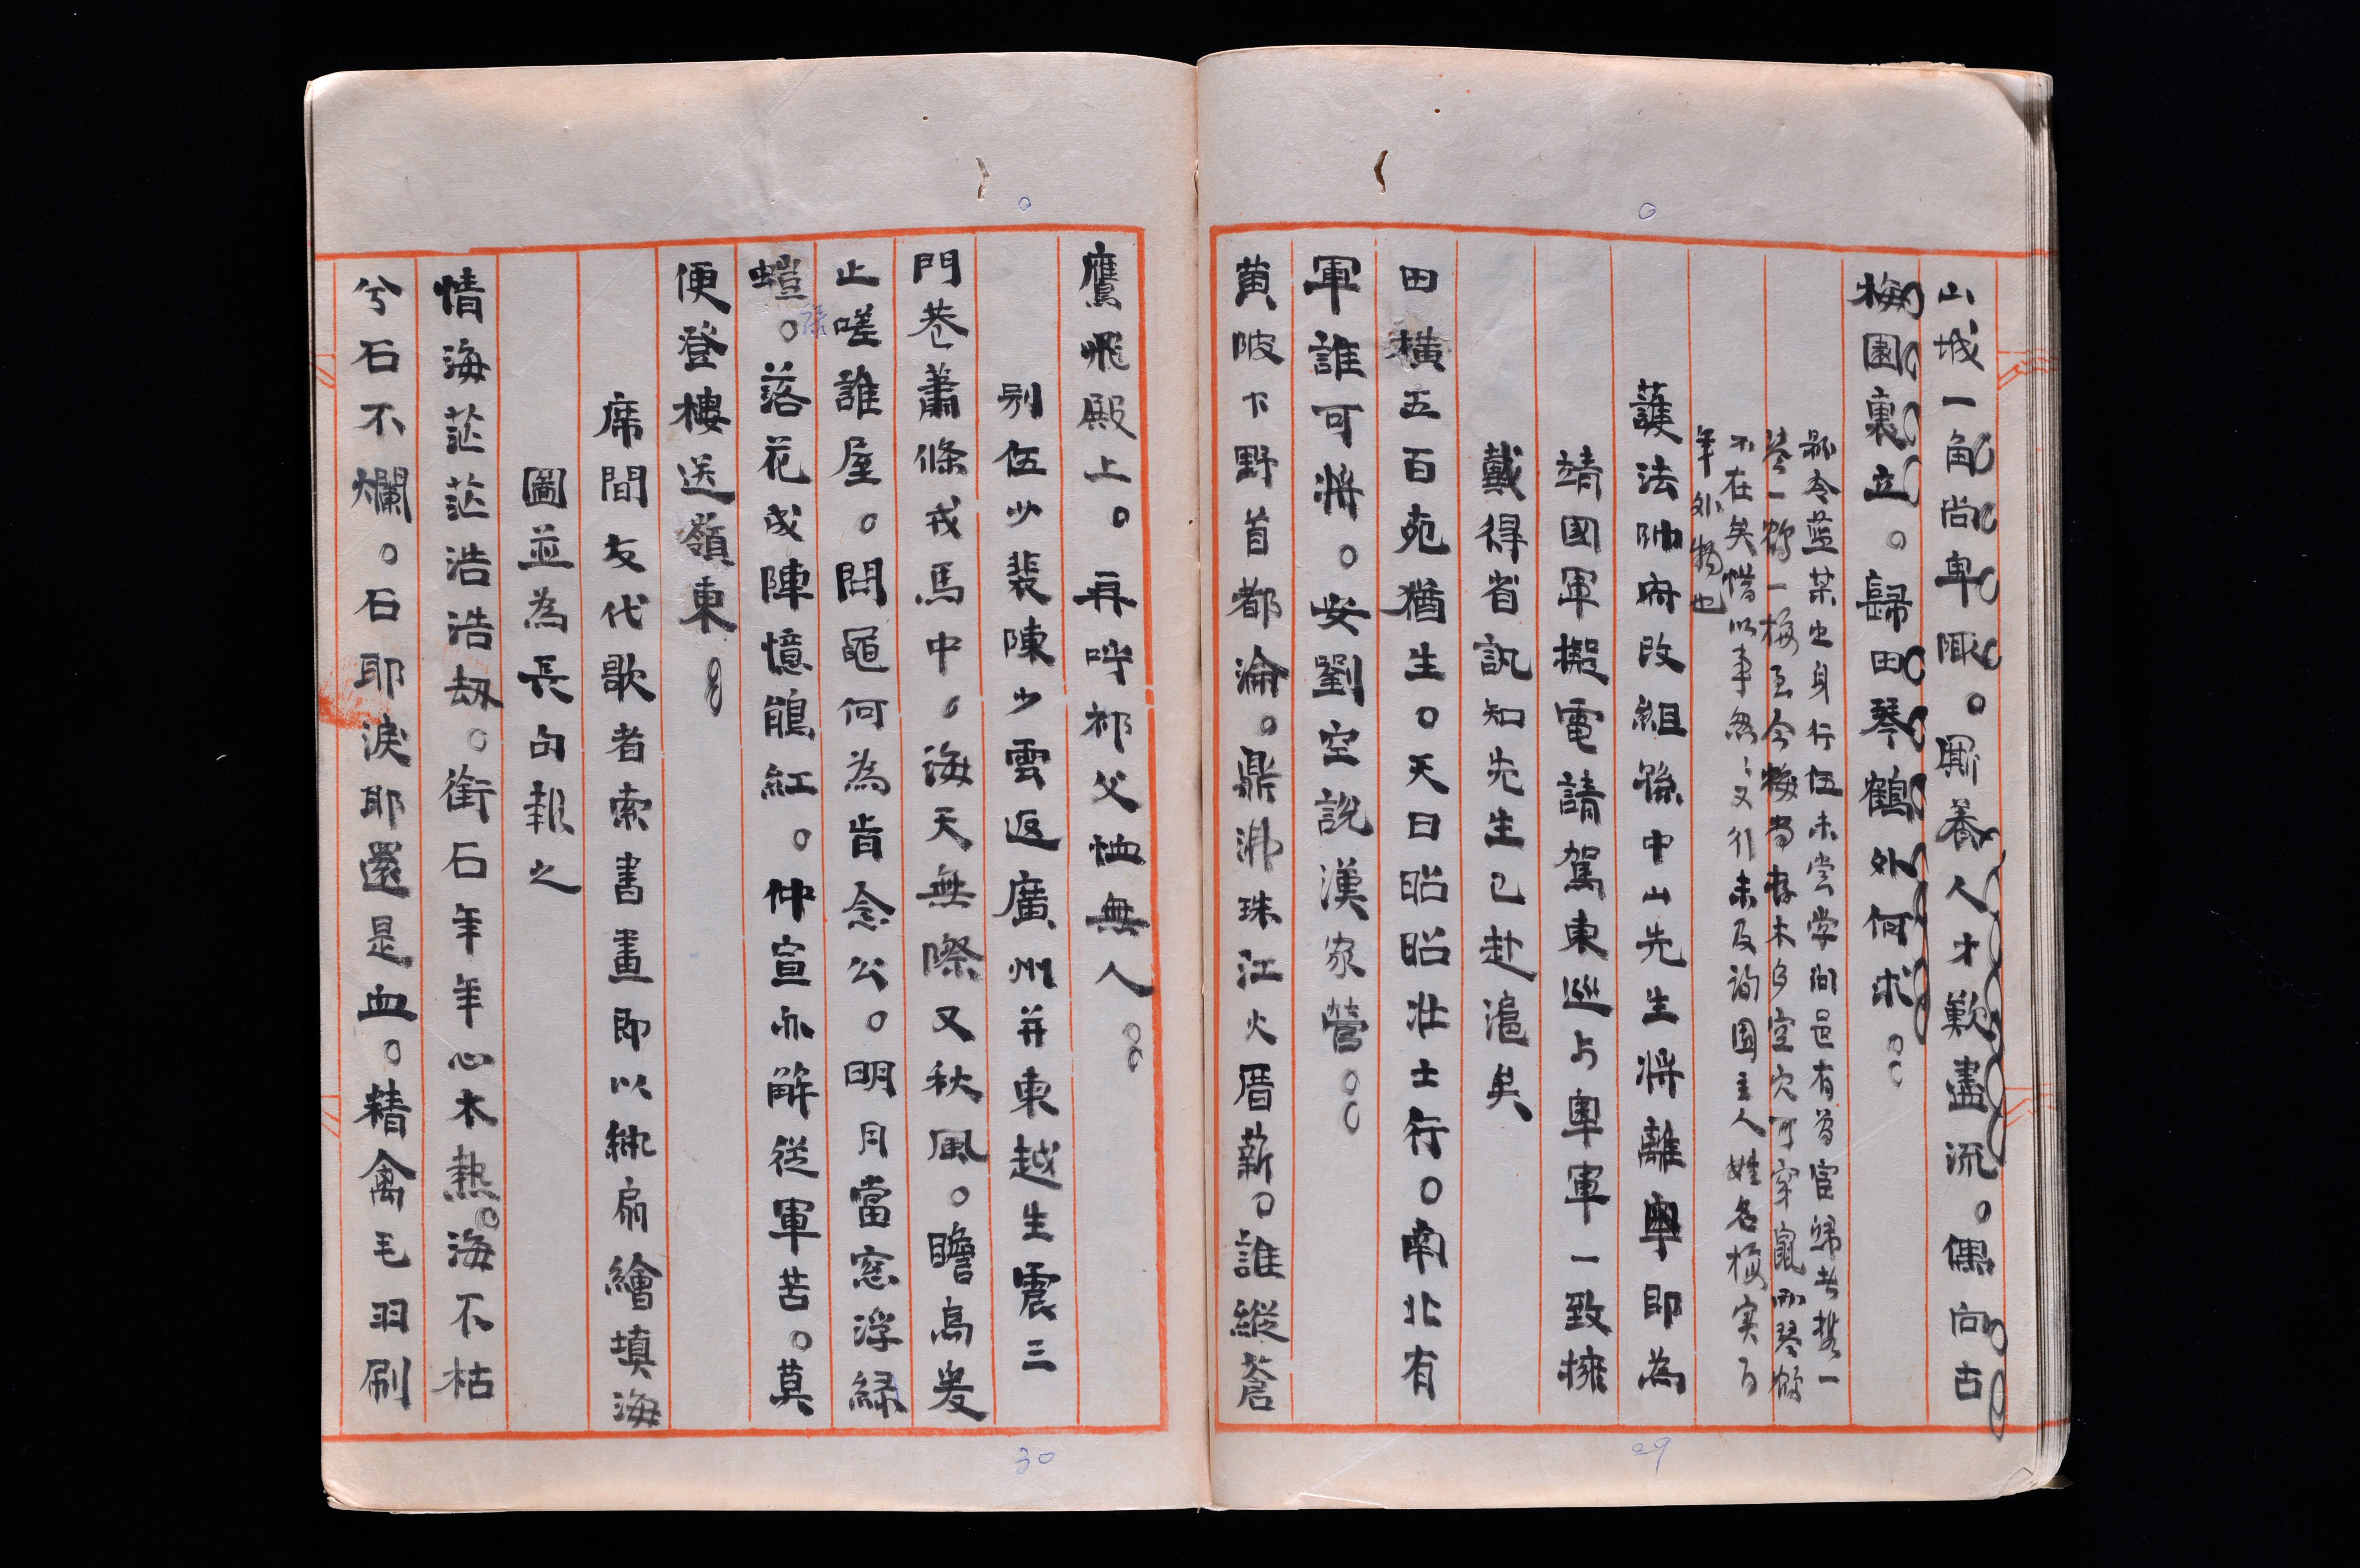 山城一角尚卑陬。厮養人才歎盡流。偶向古
梅園裏立。歸田琴鶴外何求。
縣令藍某出身行伍未嘗學問邑有某宦歸老攜一
琴一鶴一梅至今梅尚存木身空穴可穿鼠而琴鶴
不在矣惜以事怱〻又行未及詢園主人姓名梅实百
年外物也
護法帥府改組孫中山先生將離粵即為
靖國軍擬電請駕東巡与粵軍一致擁
戴得省訊知先生已赴滬矣
田橫五百宛猶生。天日昭昭壯士行。南北有
軍誰可將。安劉空說漢家營。
黃陂下野首都淪。鼎沸珠江火厝薪。誰縱蒼
29
鷹飛殿上。再呼祁父恤無人。
別伍少裴陳少雲返廣州并柬越生震三
門巷蕭條戎馬中。海天無際又秋風。瞻烏爰
止嗟誰屋。問黽何為肯念公。明月當窓浮綠
螘。落花成陣憶鵑紅。仲宣亦解從軍苦。莫
便登樓送嶺東。
席間友代歌者索書畫即以紈扇繪填海
圖並為長句報之
情海茫茫浩浩劫。銜石年年心木熱。海不枯
兮石不爛。石耶淚耶還是血。精禽毛羽刷
30